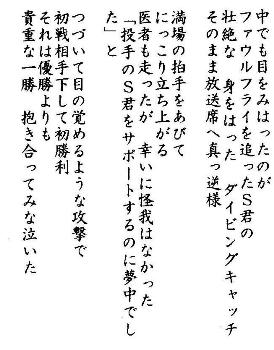 中でも目をみはったのが
ファウルフライを追ったＳ君の
壮絶な　身をはった　ダイビングキャッチ
そのまま放送席へ真っ逆様
満場の拍手をあびて
にっこり立ち上がる
医者も走ったが　幸いに怪我はなかった
「投手のＳ君をサポートするのに夢中でし
た」と
つづいて目の覚めるような攻撃で
初戦相手下して初勝利
それは優勝よりも
貴重な一勝　抱き合ってみな泣いた